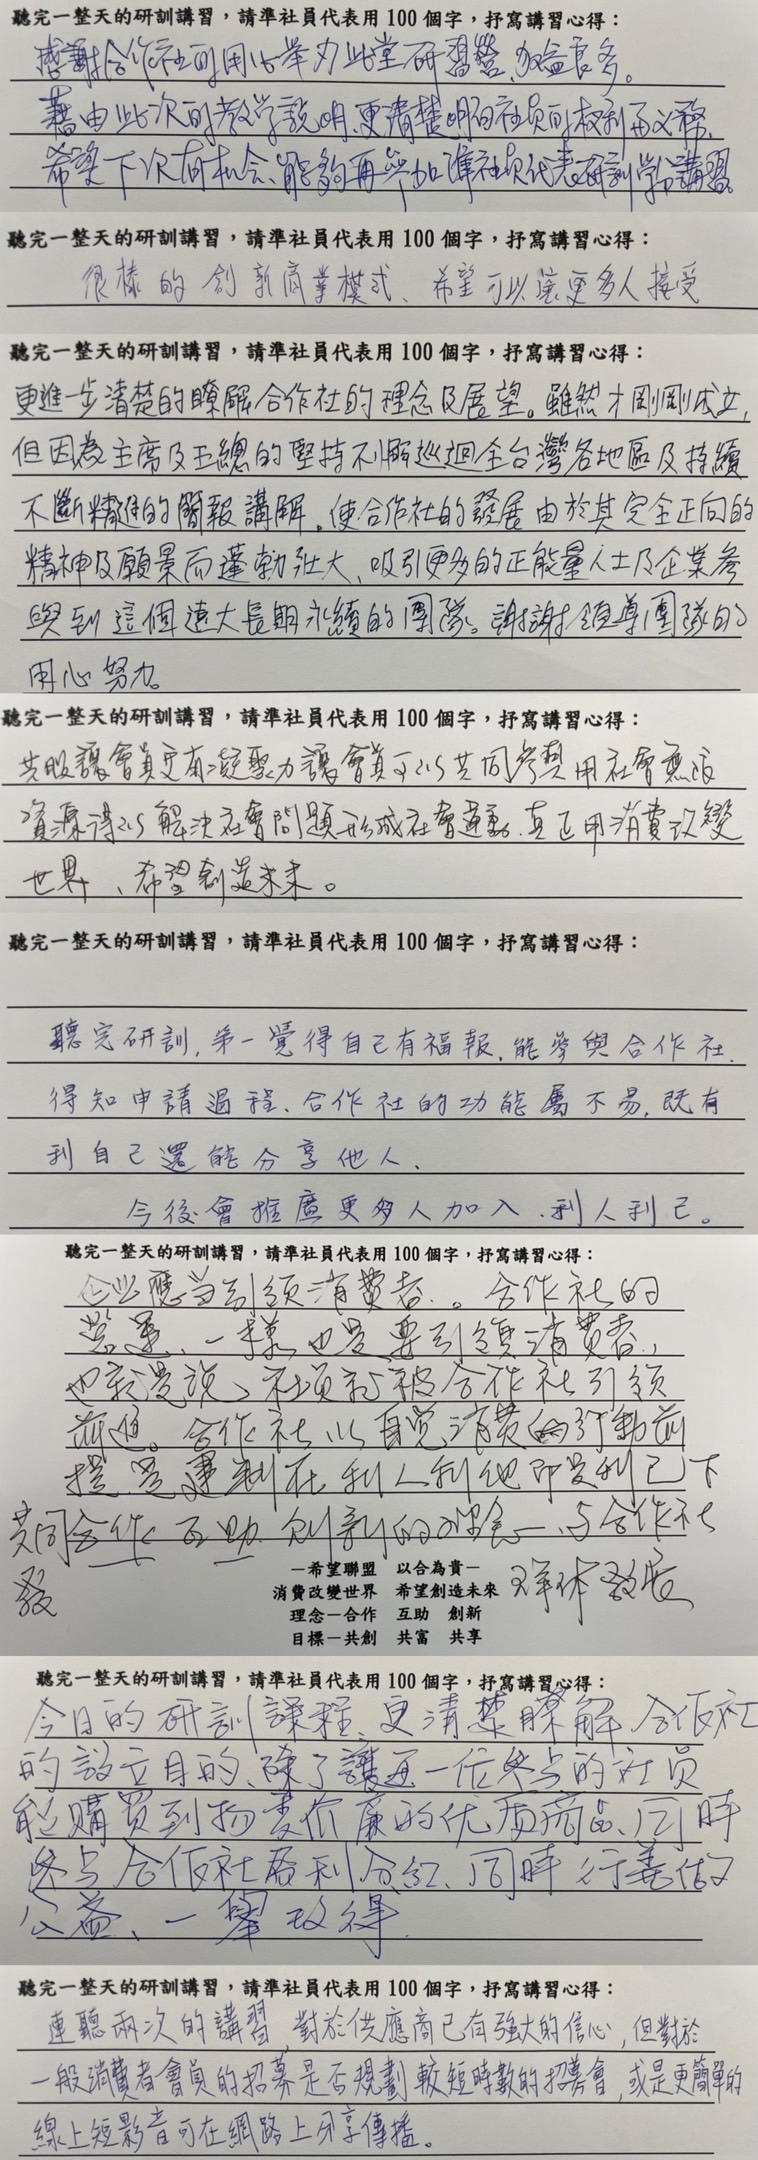 聽完一整天的研訓講習，請準社員代表用 100 個字，抒寫講習心得：
感謝合作社的用心舉办此堂研習營，加益良多。
藉由此次的教学說明、更清楚明白社員的权利再义務、
希望下次有机会、能夠再參加準社員代表研訓學講習。
聽完一整天的研訓講習，請準社員代表用 100 個字，抒寫講習心得：
很樣的 創新商業模式、希望可以讓更多人接受
聽完一整天的研訓講習，請準社員代表用 100 個字，抒寫講習心得：
更進一步清楚的瞭解合作社的理念及展望。雖然才剛剛成立，
但因為主席及王總的堅持不懈巡迴全台灣各地區及持續
不斷精進的簡報講解，使合作社的發展由於其完全正向的
精神及願景而蓬勃壯大、吸引更多的正能量人士及企業參
與到這個遠大長期永續的團隊。謝謝領導團隊的
用心努力。
聽完一整天的研訓講習，請準社員代表用 100 個字，抒寫講習心得：
共股讓會員更有凝聚力讓會員可以共同參與用社會無限
資源得以解決社會問題形成社會運動、真正用消費改變
世界、希望創造未來。
聽完一整天的研訓講習，請準社員代表用 100 個字，抒寫講習心得：
聽完研訓，第一覺得自己有福報，能參與合作社，
得知申請過程、合作社的功能屬不易，既有
利自己還能分享他人、
今後會推廣更多人加入、利人利己。
聽完一整天的研訓講習，請準社員代表用 100 個字，抒寫講習心得：
企业應当引領消費者。合作社的
營運、一樣也是要引領消費者，
也就是說、社員就被合作社引領
前進。合作社以自覺消費的行動前
提，是建制在利人利他即是利己下
共同合作 互助 創新的理念—与合作社
發
—希望聯盟　以合為貴—
消費改變世界　希望創造未來
理念—合作　互助　創新
目標—共創　共富　共享
聽完一整天的研訓講習，請準社員代表用 100 個字，抒寫講習心得：
今日的研訓課程、更清楚瞭解合作社
的設立目的、除了讓每一位參与的社員
能購買到物美价廉的优质商品、同時
參与合作社盈利分紅、同時行善做
公益、一舉改得
聽完一整天的研訓講習，請準社員代表用 100 個字，抒寫講習心得：
連聽兩次的講習，對於供應商已有強大的信心，但對於
一般消費者會員的招募是否規劃較短時數的招募會，或是更簡單的
線上短影音可在網路上分享傳播。